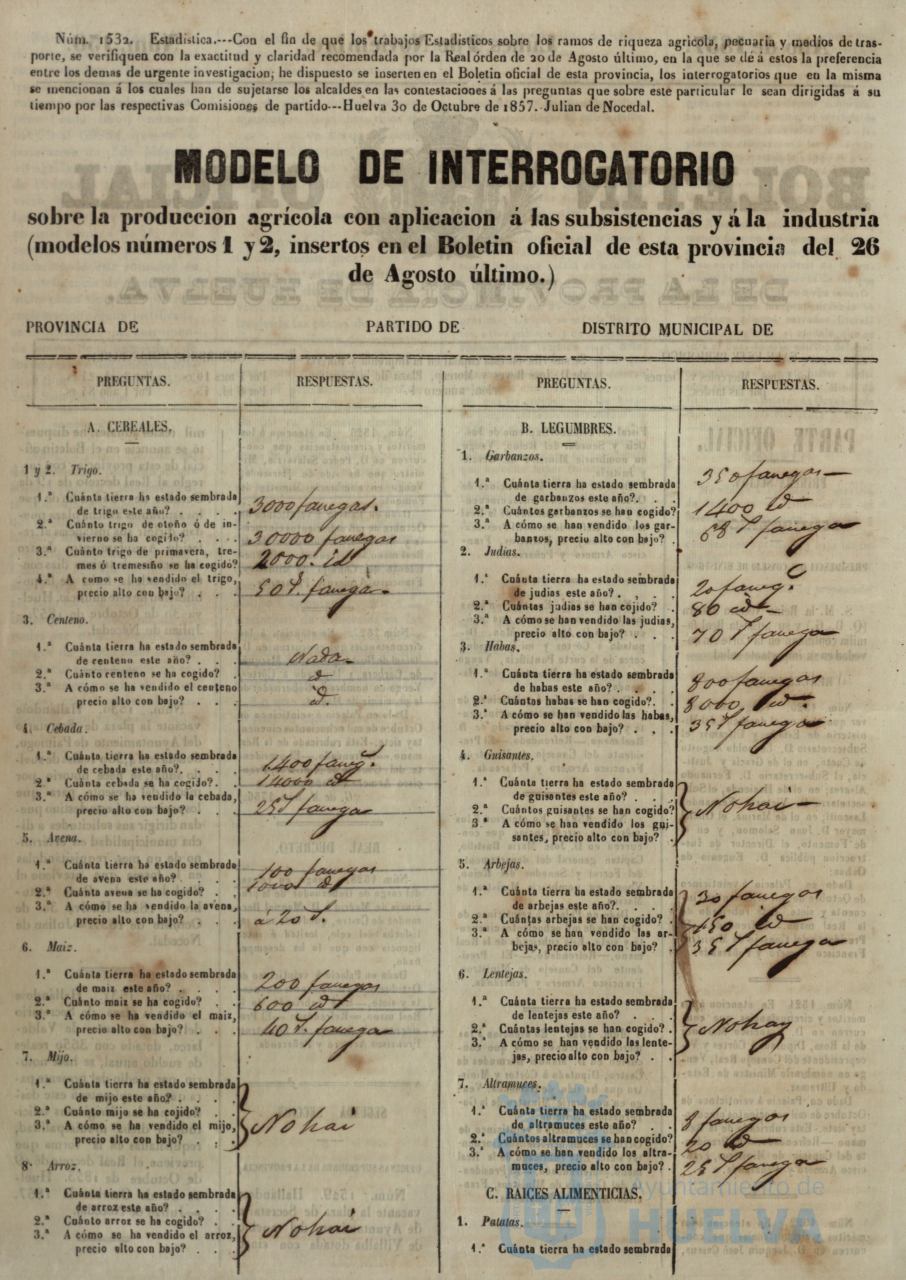 Núm. 1532. Estadística.---Con el fin de que los trabajos Estadisticos sobre los ramos de riqueza agrícola, pecuaria y medios de tras-
porte, se verifiquen con la exactitud y claridad recomendada por la Real órden de 20 de Agosto último, en la que se dé á estos la preferencia
entre los demas de urgente investigacion; he dispuesto se inserten en el Boletin oficial de esta provincia, los interrogatorios que en la misma
se mencionan á los cuales han de sujetarse los alcaldes en las contestaciones á las preguntas que sobre este particular le sean dirigidas á su
tiempo por las respectivas Comisiones de partido---Huelva 30 de Octubre de 1857. Julian de Nocedal.
MODELO DE INTERROGATORIO
sobre la produccion agrícola con aplicacion á las subsistencias y á la industria
(modelos números 1 y 2, insertos en el Boletin oficial de esta provincia del 26
de Agosto último.)
PROVINCIA DE PARTIDO DE DISTRITO MUNICIPAL DE
PREGUNTAS. RESPUESTAS.
A. CEREALES.
1 y 2. Trigo.
1.ª Cuánta tierra ha estado sembrada
de trigo este año? . . . . 3000 fanegas.
2.ª Cuánto trigo de otoño ó de in-
vierno se ha cogido? . . . 30000 fanegas
3.ª Cuánto trigo de primavera, tre-
mes ó tremesino se ha cogido? 2000. id
4.ª A como se ha vendido el trigo,
precio alto con bajo? . . . 50 fanega.
3. Centeno.
1.ª Cuánta tierra ha estado sembrada
de centeno este año? . . . Nada
2.ª Cuánto centeno se ha cogido? . . d
3.ª A cómo se ha vendido el centeno
precio alto con bajo? . . . d.
4. Cebada.
1.ª Cuánta tierra ha estado sembrada
de cebada este año?. . . . 1400 faneg.
2.ª Cuánta cebada se ha cogido?. . . 14000 d
3.ª A cómo se ha vendido la cebada,
precio alto con bajo? . . . 25 fanega
5. Avena.
1.ª Cuánta tierra ha estado sembrada
de avena este año? . . . . 100 fanegas
2.ª Cuánta avena se ha cogido? . . 1000 d
3.ª A cómo se ha vendido la avena,
precio alto con bajo? . . . á 20
6. Maiz.
1.ª Cuánta tierra ha estado sembrada
de maiz este año? . . . . 200 fanegas
2.ª Cuánto maiz se ha cogido? . . 600 d
3.ª A cómo se ha vendido el maiz,
precio alto con bajo? . . . 40 fanega
7. Mijo.
1.ª Cuánta tierra ha estado sembrada
de mijo este año? . . . .
2.ª Cuánto mijo se ha cojido? . . No hai
3.ª A cómo se ha vendido el mijo,
precio alto con bajo? . . .
8. Arroz.
1.ª Cuánta tierra ha estado sembrada
de arroz este año? . . . .
2.ª Cuánto arroz se ha cogido? . . No hai
3.ª A cómo se ha vendido el arroz,
precio alto con bajo? . . .
PREGUNTAS. RESPUESTAS.
B. LEGUMBRES.
1. Garbanzos.
1.ª Cuánta tierra ha estado sembrada
de garbanzos este año?. . . 350 fanegas
2.ª Cuántos garbanzos se han cogido? 1400 d
3.ª A cómo se han vendido los gar-
banzos, precio alto con bajo? . 68 fanega
2. Judias.
1.ª Cuánta tierra ha estado sembrada
de judias este año?. . . . 20 faneg.
2.ª Cuántas judias se han cojido? . 80 d
3.ª A cómo se han vendido las judias,
precio alto con bajo? . . . 70 fanega
3. Habas.
1.ª Cuánta tierra ha estado sembrada
de habas este año? . . . . 800 fanegas
2.ª Cuántas habas se han cogido?. . 8000 d.
3.ª A cómo se han vendido las habas,
precio alto con bajo? . . . 35 fanega
4. Guisantes.
1.ª Cuánta tierra ha estado sembrada
de guisantes este año? . . .
2.ª Cuántos guisantes se han cogido? No hai
3.ª A cómo se han vendido los gui-
santes, precio alto con bajo? .
5. Arbejas.
1.ª Cuánta tierra ha estado sembrada
de arbejas este año?. . . . 30 fanegas
2.ª Cuántas arbejas se han cogido? . 450 d
3.ª A cómo se han vendido las ar-
bejas, precio alto con bajo? . 35 fanega
6. Lentejas.
1.ª Cuánta tierra ha estado sembrada
de lentejas este año? . . .
2.ª Cuántas lentejas se han cogido? . No hay
3.ª A cómo se han vendido las lente-
jas, precio alto con bajo? . .
7. Altramuces.
1.ª Cuánta tierra ha estado sembrada
de altramuces este año? . . 8 fanegas
2.ª Cuántos altramuces se han cogido? 20 d
3.ª A cómo se han vendido los altra-
muces, precio alto con bajo? . 25 fanega
C. RAICES ALIMENTICIAS.
1. Patatas.
1.ª Cuánta tierra ha estado sembrada
Ayuntamiento de
HUELVA